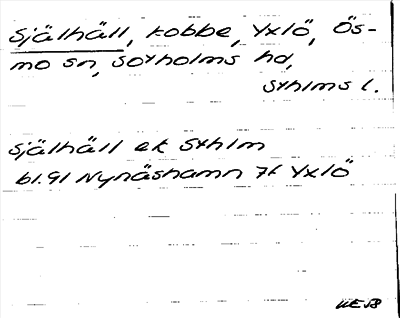 Själhäll, kobbe, Yxlö, Ös-
mo sn, Sotholms hd,
Sthlms l.
Själhäll ek Sthlm
bl.91 Nynäshamn 7f Yxlö